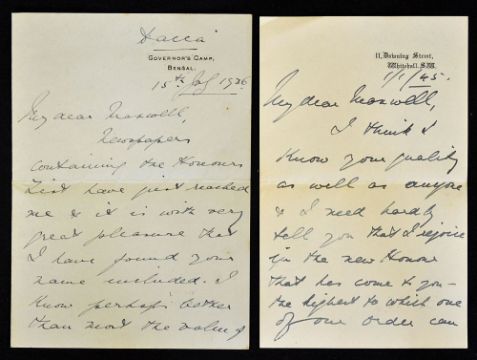 Dacca
GOVERNOR'S CAMP,
BENGAL.
15th July 1936
My dear Maxwell,
Newspapers
containing the Honours
List have just reached
me & it is with very
great pleasure that
I have found your
name included. I
know perhaps better
than most the value of
11, Downing Street,
Whitehall, S.W.
1/1/45.
My dear Maxwell,
I think I
know your quality
as well as anyone
& I need hardly
tell you that I rejoice
in the new Honour
that has come to you –
the highest to which one
of our order can